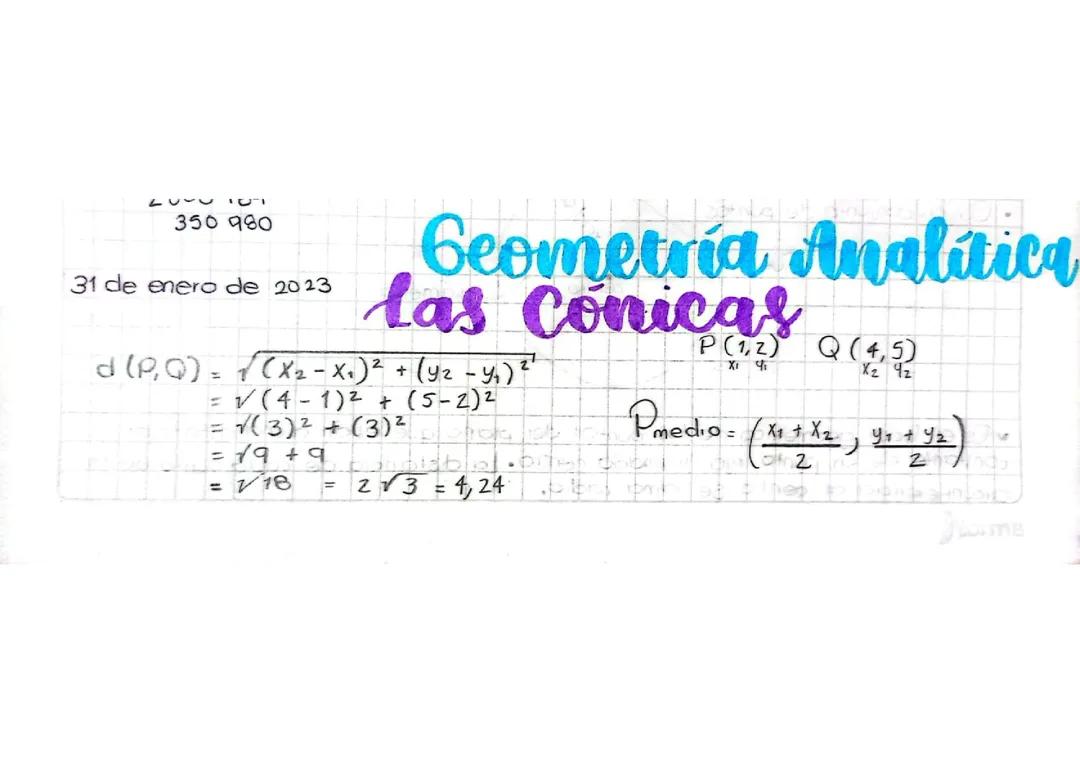 350 980
Geometría Analítica
31 de enero de 2023
las Cónicas
P(1,2) Q(4,5)
x₁ y₁ x₂ y₂
d(P,Q) = √(x₂ - x₁)² + (y₂ - y₁)²
= √(4 - 1)² + (5-2)²
= √(3)² + (3)²
Pmedio = (x₁ + x₂ / 2, y₁ + y₂ / 2)
= √9 + 9
= √18 = 2√3 = 4,24